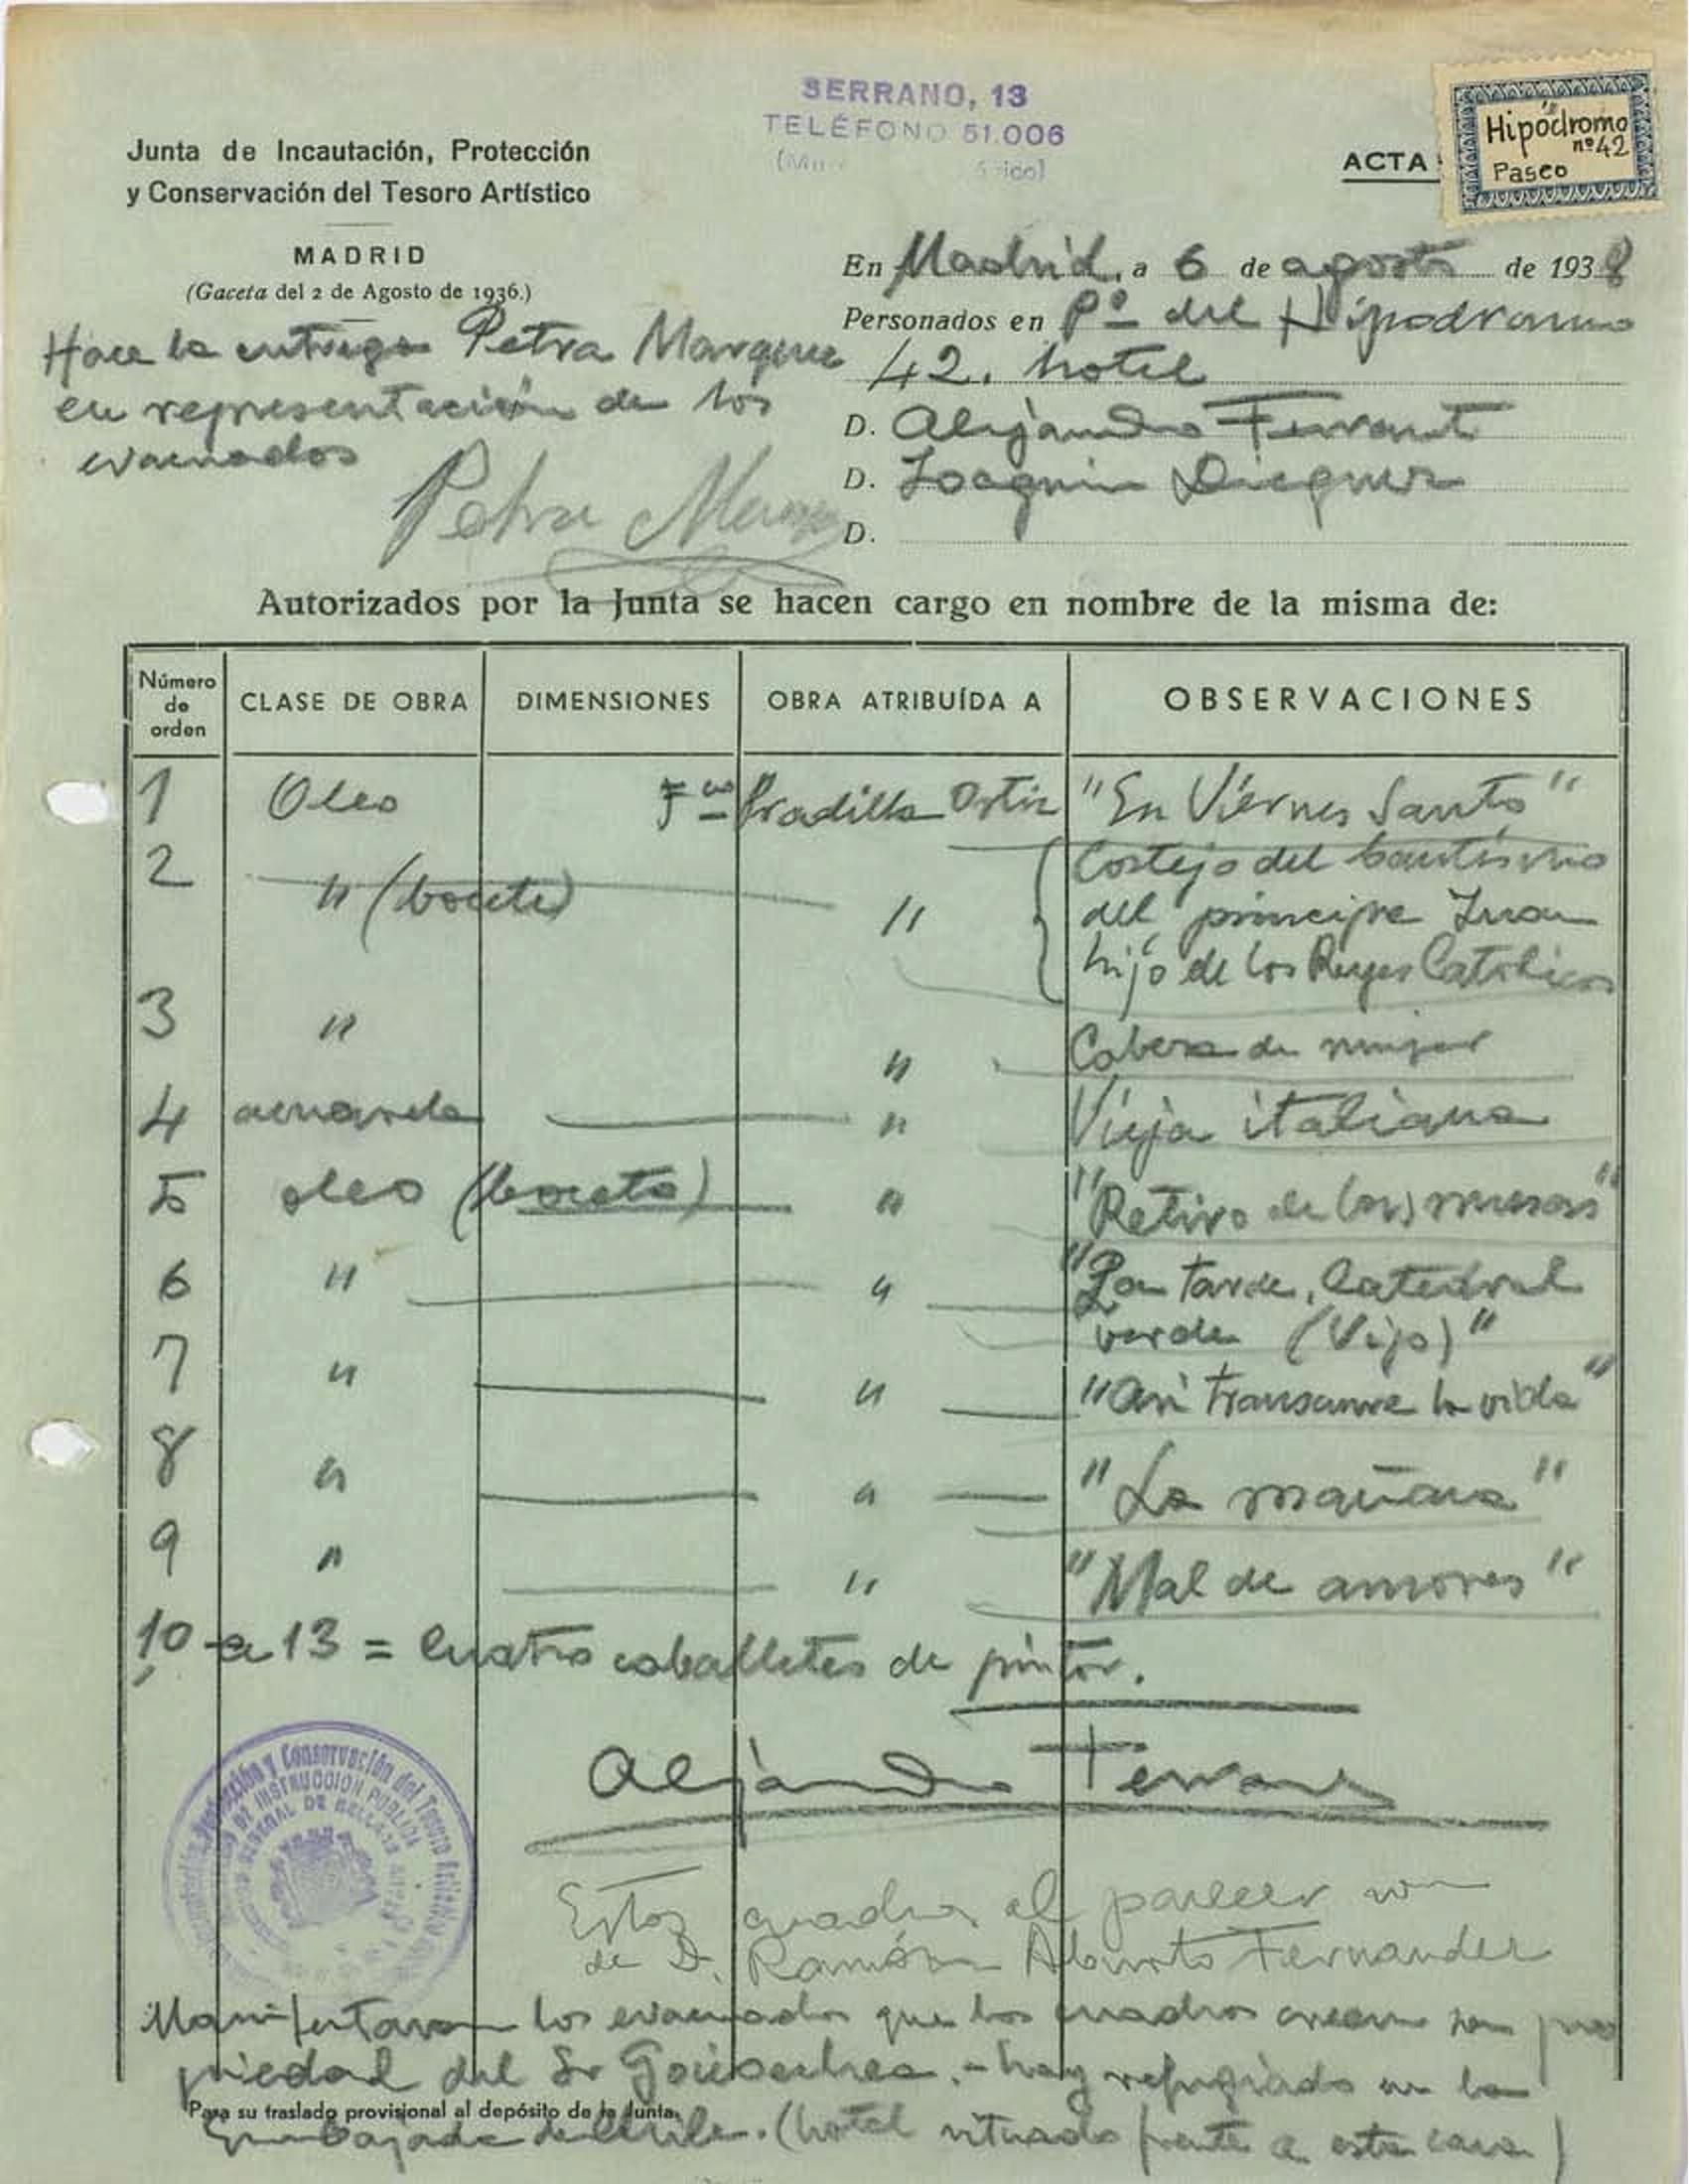 SERRANO, 13
TELÉFONO 51.006
Junta de Incautación, Protección
y Conservación del Tesoro Artístico
MADRID
(Gaceta del 2 de Agosto de 1936.)
ACTA
Hipódromo
nº 42
Paseo
En Madrid, a 6 de agosto de 1938
Personados en Pº del Hipodromo
42. hotel
D. Alejandro Ferrant
D. Joaquin
D.
Hace la entrega Petra Marquez
en representación de los
evacuados
Petra
Autorizados por la Junta se hacen cargo en nombre de la misma de:
Número de orden CLASE DE OBRA DIMENSIONES OBRA ATRIBUÍDA A OBSERVACIONES
1 Oleo Fco Pradilla Ortiz "En Viernes Santo"
2 " (boceto) " Cortejo del bautismo
del principe Juan
hijo de los Reyes Catolicos
3 " " Cabeza de mujer
4 acuarela " Vieja italiana
5 oleo (boceto) " "Retiro de las musas"
6 " " "La tarde, Catedral
verde (Vigo)"
7 " " "Asi transcurre la vida"
8 " " "La mañana"
9 " " "Mal de amores"
10 a 13 = Cuatro caballetes de pintor.
Alejandro Ferrant
Estos cuadros al parecer son
de D. Ramón Aburto Fernandez
Manifestaron los evacuados que los cuadros creen son pro
piedad del Sr Goicoechea. - hay refugiado en la
Para su traslado provisional al depósito de la Junta.
Embajada de Chile. (hotel situado frente a esta casa)